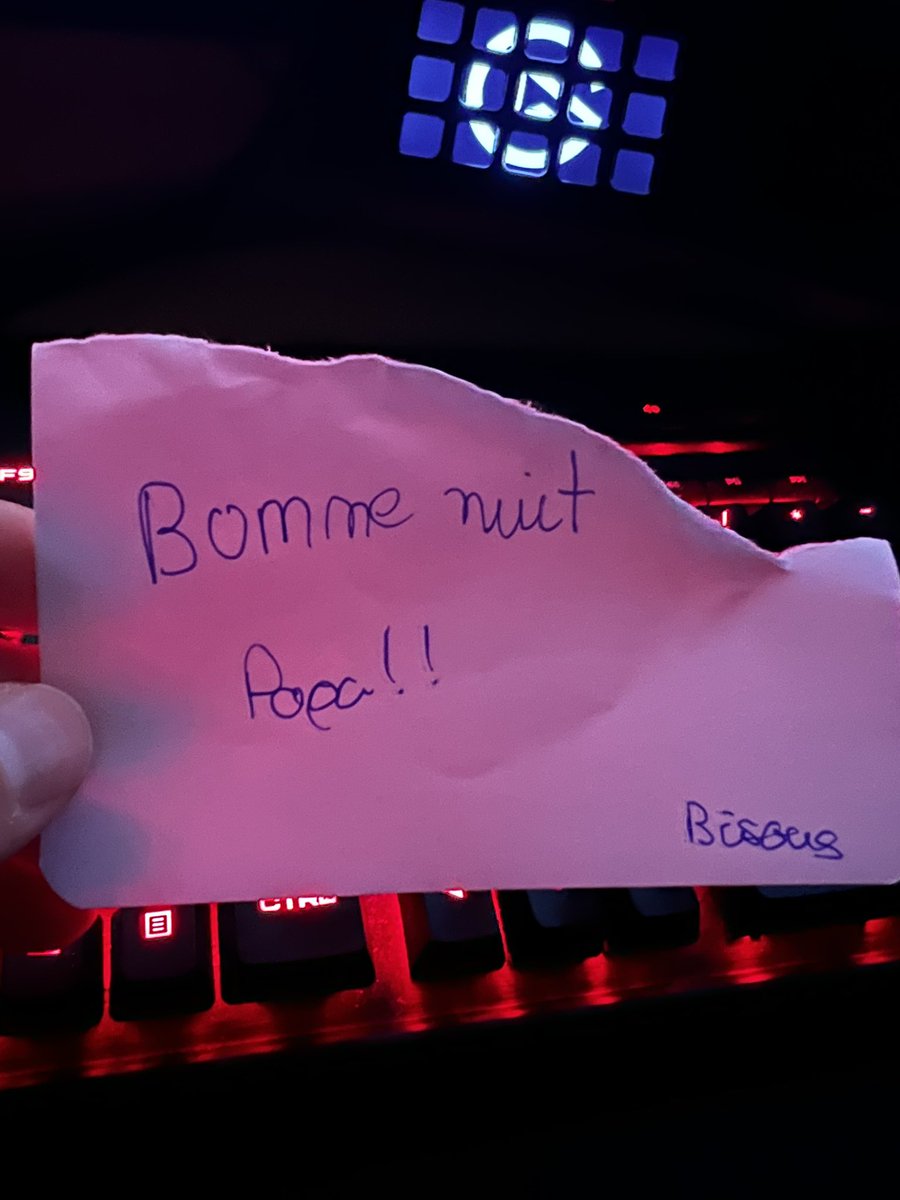 F9
Bonne nuit
Papa!!
Bisous
CTRL